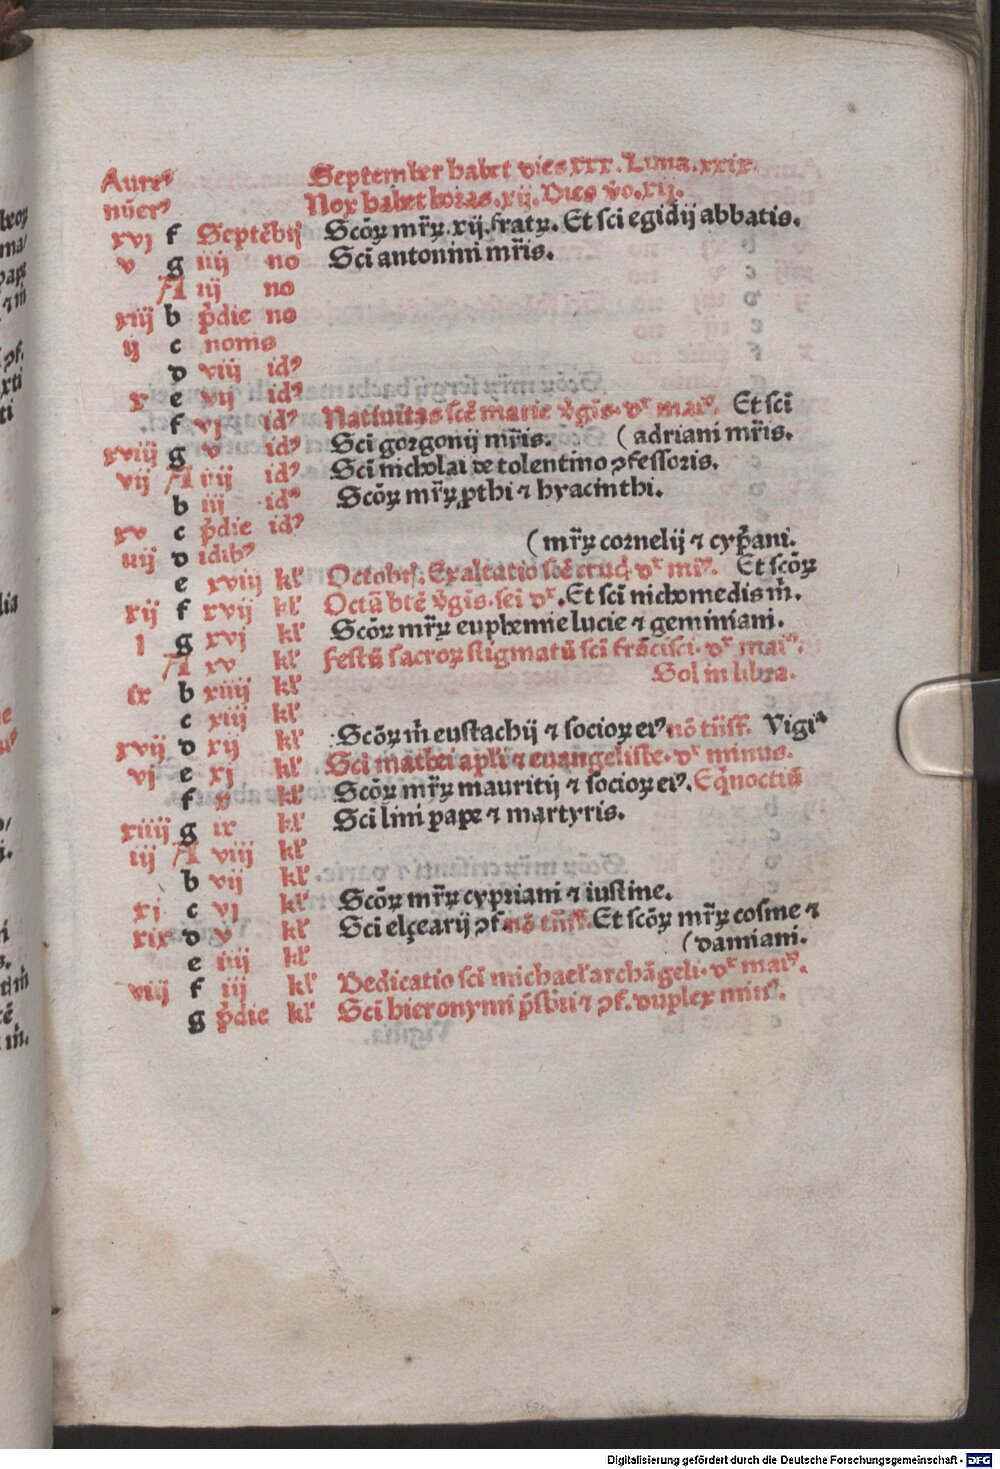 Aure⁹ September habet dies xxx. Luna. xxix.
nūer⁹ Nox habet horas. xij. Dies v̊o. xij.
xvj f Septēbij Scōꝝ mr̄ꝝ. xij. fratꝝ. Et sci egidij abbatis.
v g iiij no Sci antonini mr̄is.
A iij no
xiij b p̄die no
ij c nonis
d viij id⁹
x e vij id⁹
f vj id⁹ Natiuitas scē marie v̊gīs. dˣ mai⁹. Et scī
xviij g v id⁹ Sci gorgonij mr̄is. (adriani mr̄is.
vij A iiij id⁹ Sci nicholai de tolentino ꝯfessoris.
b iij id⁹ Scōꝝ mr̄ꝝ ꝓthi ⁊ hyacinthi.
xv c p̄die id⁹
iiij d idib⁹ (mr̄ꝝ cornelij ⁊ cyp̄ani.
e xviij kl' Octobris. Exaltatio scē cruc̄. dˣ mi⁹. Et scōꝝ
xij f xvij kl' Octā btē v̊gīs. sei dˣ. Et sci nichomedis m̄.
j g xvj kl' Scōꝝ mr̄ꝝ euphemie lucie ⁊ geminiani.
A xv kl' Festū sacroꝝ stigmatū sci frācisci. dˣ mai⁹.
ix b xiiij kl' Sol in libra.
c xiij kl'
xvij d xij kl' Scōꝝ m̄ eustachij ⁊ socioꝝ ei⁹ nō tn̄ sr̄. Vigiª
vj e xj kl' Sci mathei apli ⁊ euangeliste. dˣ minus.
f x kl' Scōꝝ mr̄ꝝ mauritij ⁊ socioꝝ ei⁹. Eq̄noctiū
xiiij g ix kl' Sci lini pape ⁊ martyris.
iij A viij kl'
b vij kl'
xj c vj kl' Scōꝝ mr̄ꝝ cypriani ⁊ iustine.
xix d v kl' Sci elçearij ꝯf. nō tn̄ sr̄. Et scōꝝ mr̄ꝝ cosme ⁊
e iiij kl' (damiani.
viij f iij kl' Dedicatio sci michael' archāgeli. dˣ mai⁹.
g p̄die kl' Sci hieronymi p̄sbr̄i ⁊ ꝯf. duplex min⁹.
Vigilia.
Digitalisierung gefördert durch die Deutsche Forschungsgemeinschaft - DFG